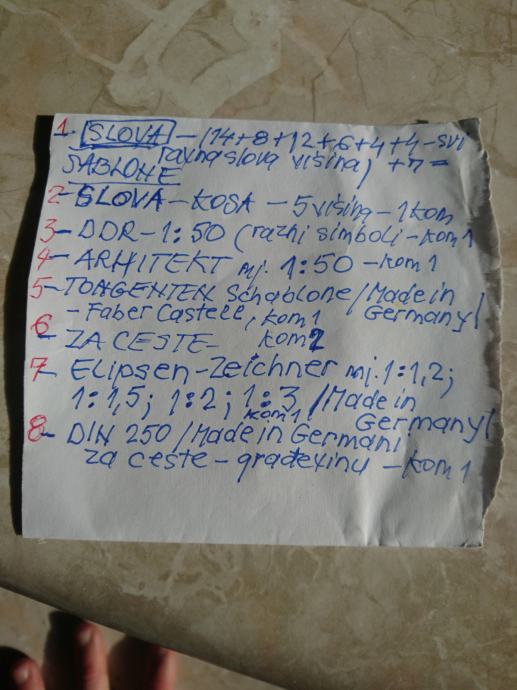 1. SLOVA - (14+8+12+6+4+4-svi
ravna slova višina) +7=
ŠABLONE
2- SLOVA - KOSA - 5 višina - 1 kom
3- DDR - 1:50 (razni simboli - kom 1
4- ARHITEKT mj. 1:50 - kom 1
5- TONGENTEN Schablone/Made in
- Faber Castell, kom 1 Germany/
6- ZA CESTE - kom 2
7- Elipsen-Zeichner mj. 1:1,2;
1:1,5; 1:2; 1:3 /Made in
kom 1 Germany/
8- DIN 250 /Made in Germani
za ceste - građevinu - kom 1